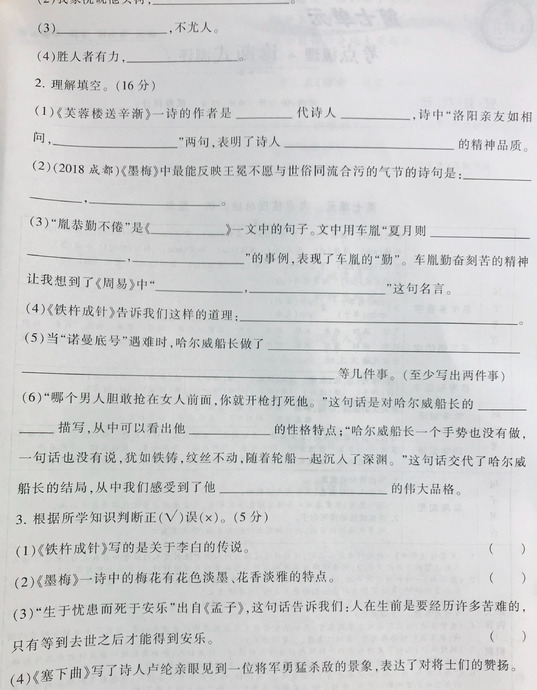 (3)____________,不尤人。
(4)胜人者有力,____________。
2. 理解填空。(16 分)
(1)《芙蓉楼送辛渐》一诗的作者是 ______ 代诗人 ________,诗中“洛阳亲友如相
问,____________”两句,表明了诗人 ____________ 的精神品质。
(2)(2018 成都)《墨梅》中最能反映王冕不愿与世俗同流合污的气节的诗句是:________
______,____________。
(3)“胤恭勤不倦”是《____________》一文中的句子。文中用车胤“夏月则 ____________
____________,____________”的事例,表现了车胤的“勤”。车胤勤奋刻苦的精神
让我想到了《周易》中“____________,____________”这句名言。
(4)《铁杵成针》告诉我们这样的道理:____________。
(5)当“诺曼底号”遇难时,哈尔威船长做了 ____________
____________ 等几件事。(至少写出两件事)
(6)“哪个男人胆敢抢在女人前面,你就开枪打死他。”这句话是对哈尔威船长的 ______
____ 描写,从中可以看出他 ________ 的性格特点;“哈尔威船长一个手势也没有做,
一句话也没有说,犹如铁铸,纹丝不动,随着轮船一起沉入了深渊。”这句话交代了哈尔威
船长的结局,从中我们感受到了他 ____________ 的伟大品格。
3. 根据所学知识判断正(√)误(×)。(5 分)
(1)《铁杵成针》写的是关于李白的传说。 (  )
(2)《墨梅》一诗中的梅花有花色淡墨、花香淡雅的特点。 (  )
(3)“生于忧患而死于安乐”出自《孟子》,这句话告诉我们:人在生前是要经历许多苦难的,
只有等到去世之后才能得到安乐。 (  )
(4)《塞下曲》写了诗人卢纶亲眼见到一位将军勇猛杀敌的景象,表达了对将士们的赞扬。